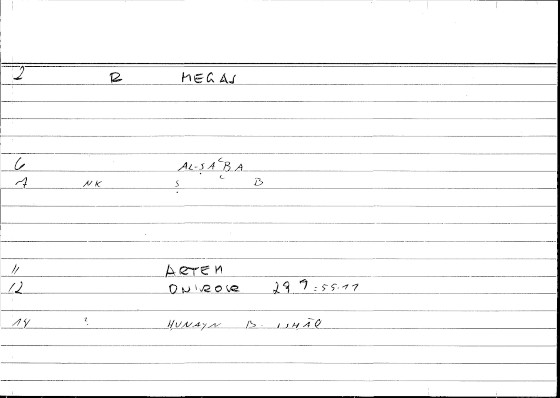 2 R MEGAS
6 AL-ṢAʿBA
7 NK Ṣ B
11 ARTEM
12 ONIROCR 299:55-17
14 ? HUNAYN B.